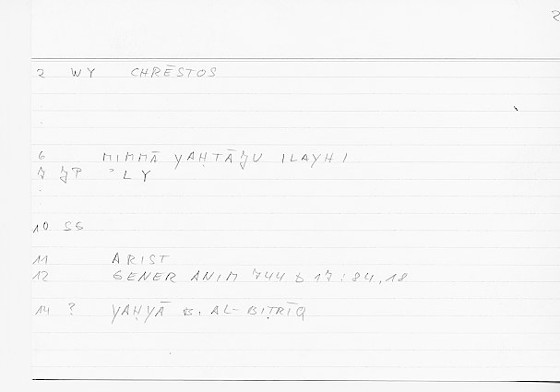 2
2 WY CHRĒSTOS
6 MIMMĀ YAḤTĀǦU ILAYHI
7 ǦP ʾLY
10 SG
11 ARIST
12 GENER ANIM 744 b 17 : 84,18
14 ? YAḤYĀ B. AL-BIṬRĪQ